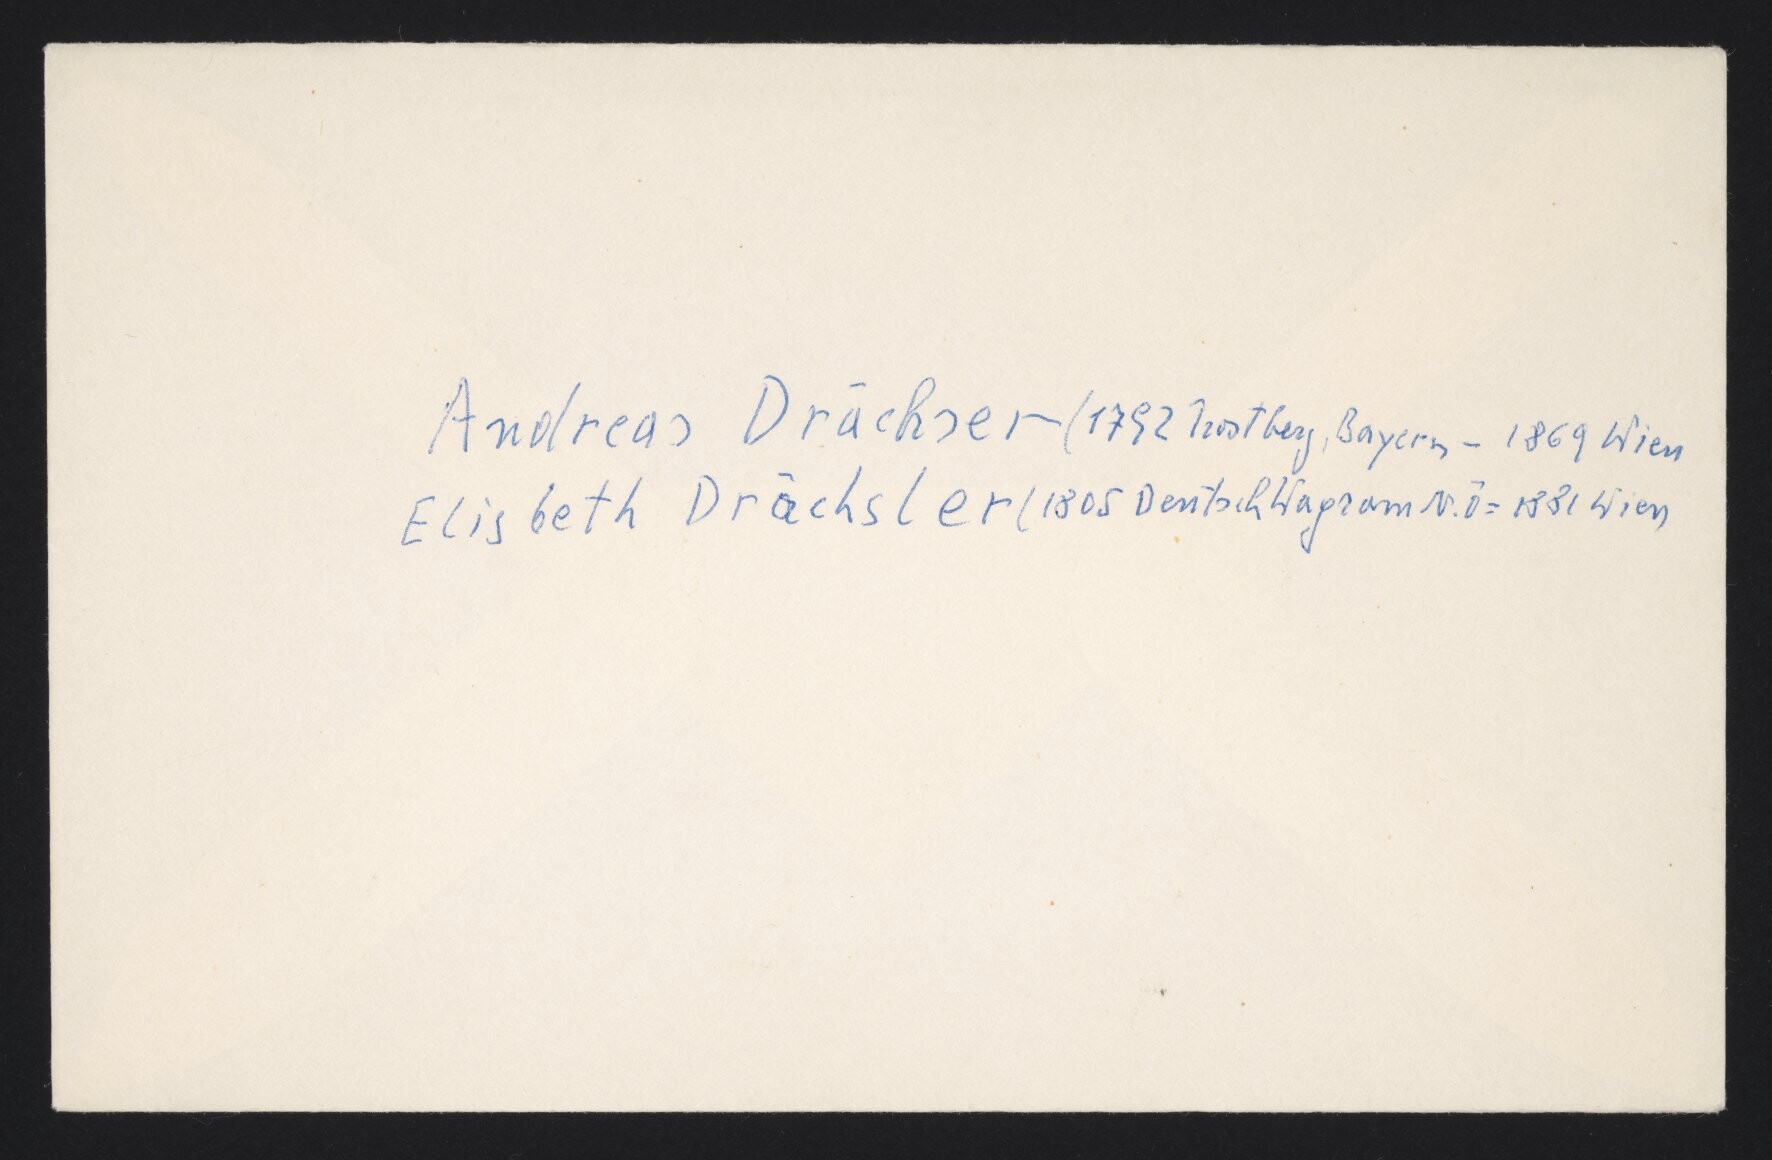 Andreas Drächser (1792 Trostberg, Bayern - 1869 Wien
Elisbeth Drächsler (1805 Deutsch Wagram N.Ö = 1881 Wien